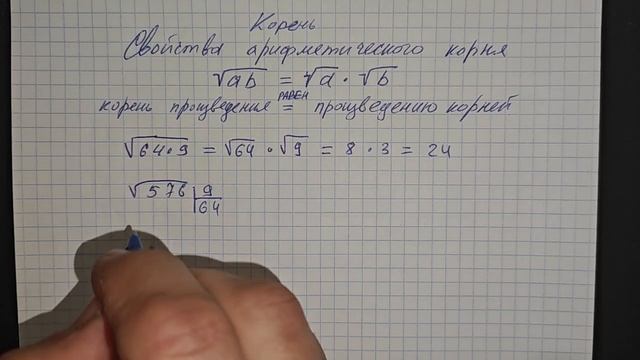 Корень
Свойства арифметического корня
√ab = √a · √b
корень произведения = РАВЕН произведению корней
√64·9 = √64 · √9 = 8 · 3 = 24
√576 9
64